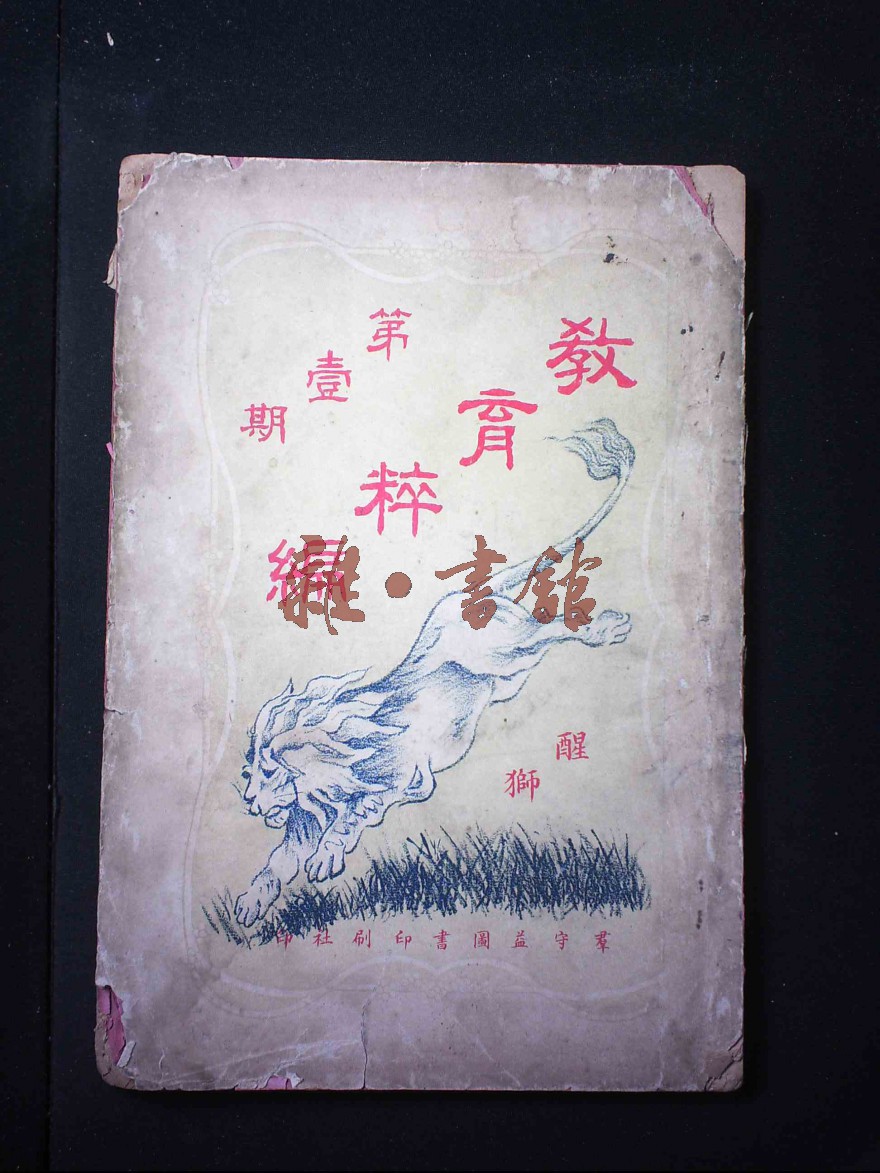 教育粹編
第壹期
醒獅
羣守益圖書印刷社印
雜·書館